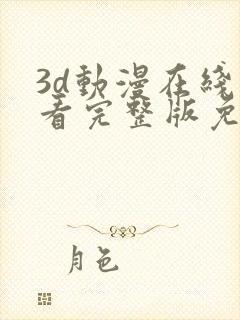 3d動漫在綫
看完整版免
月色